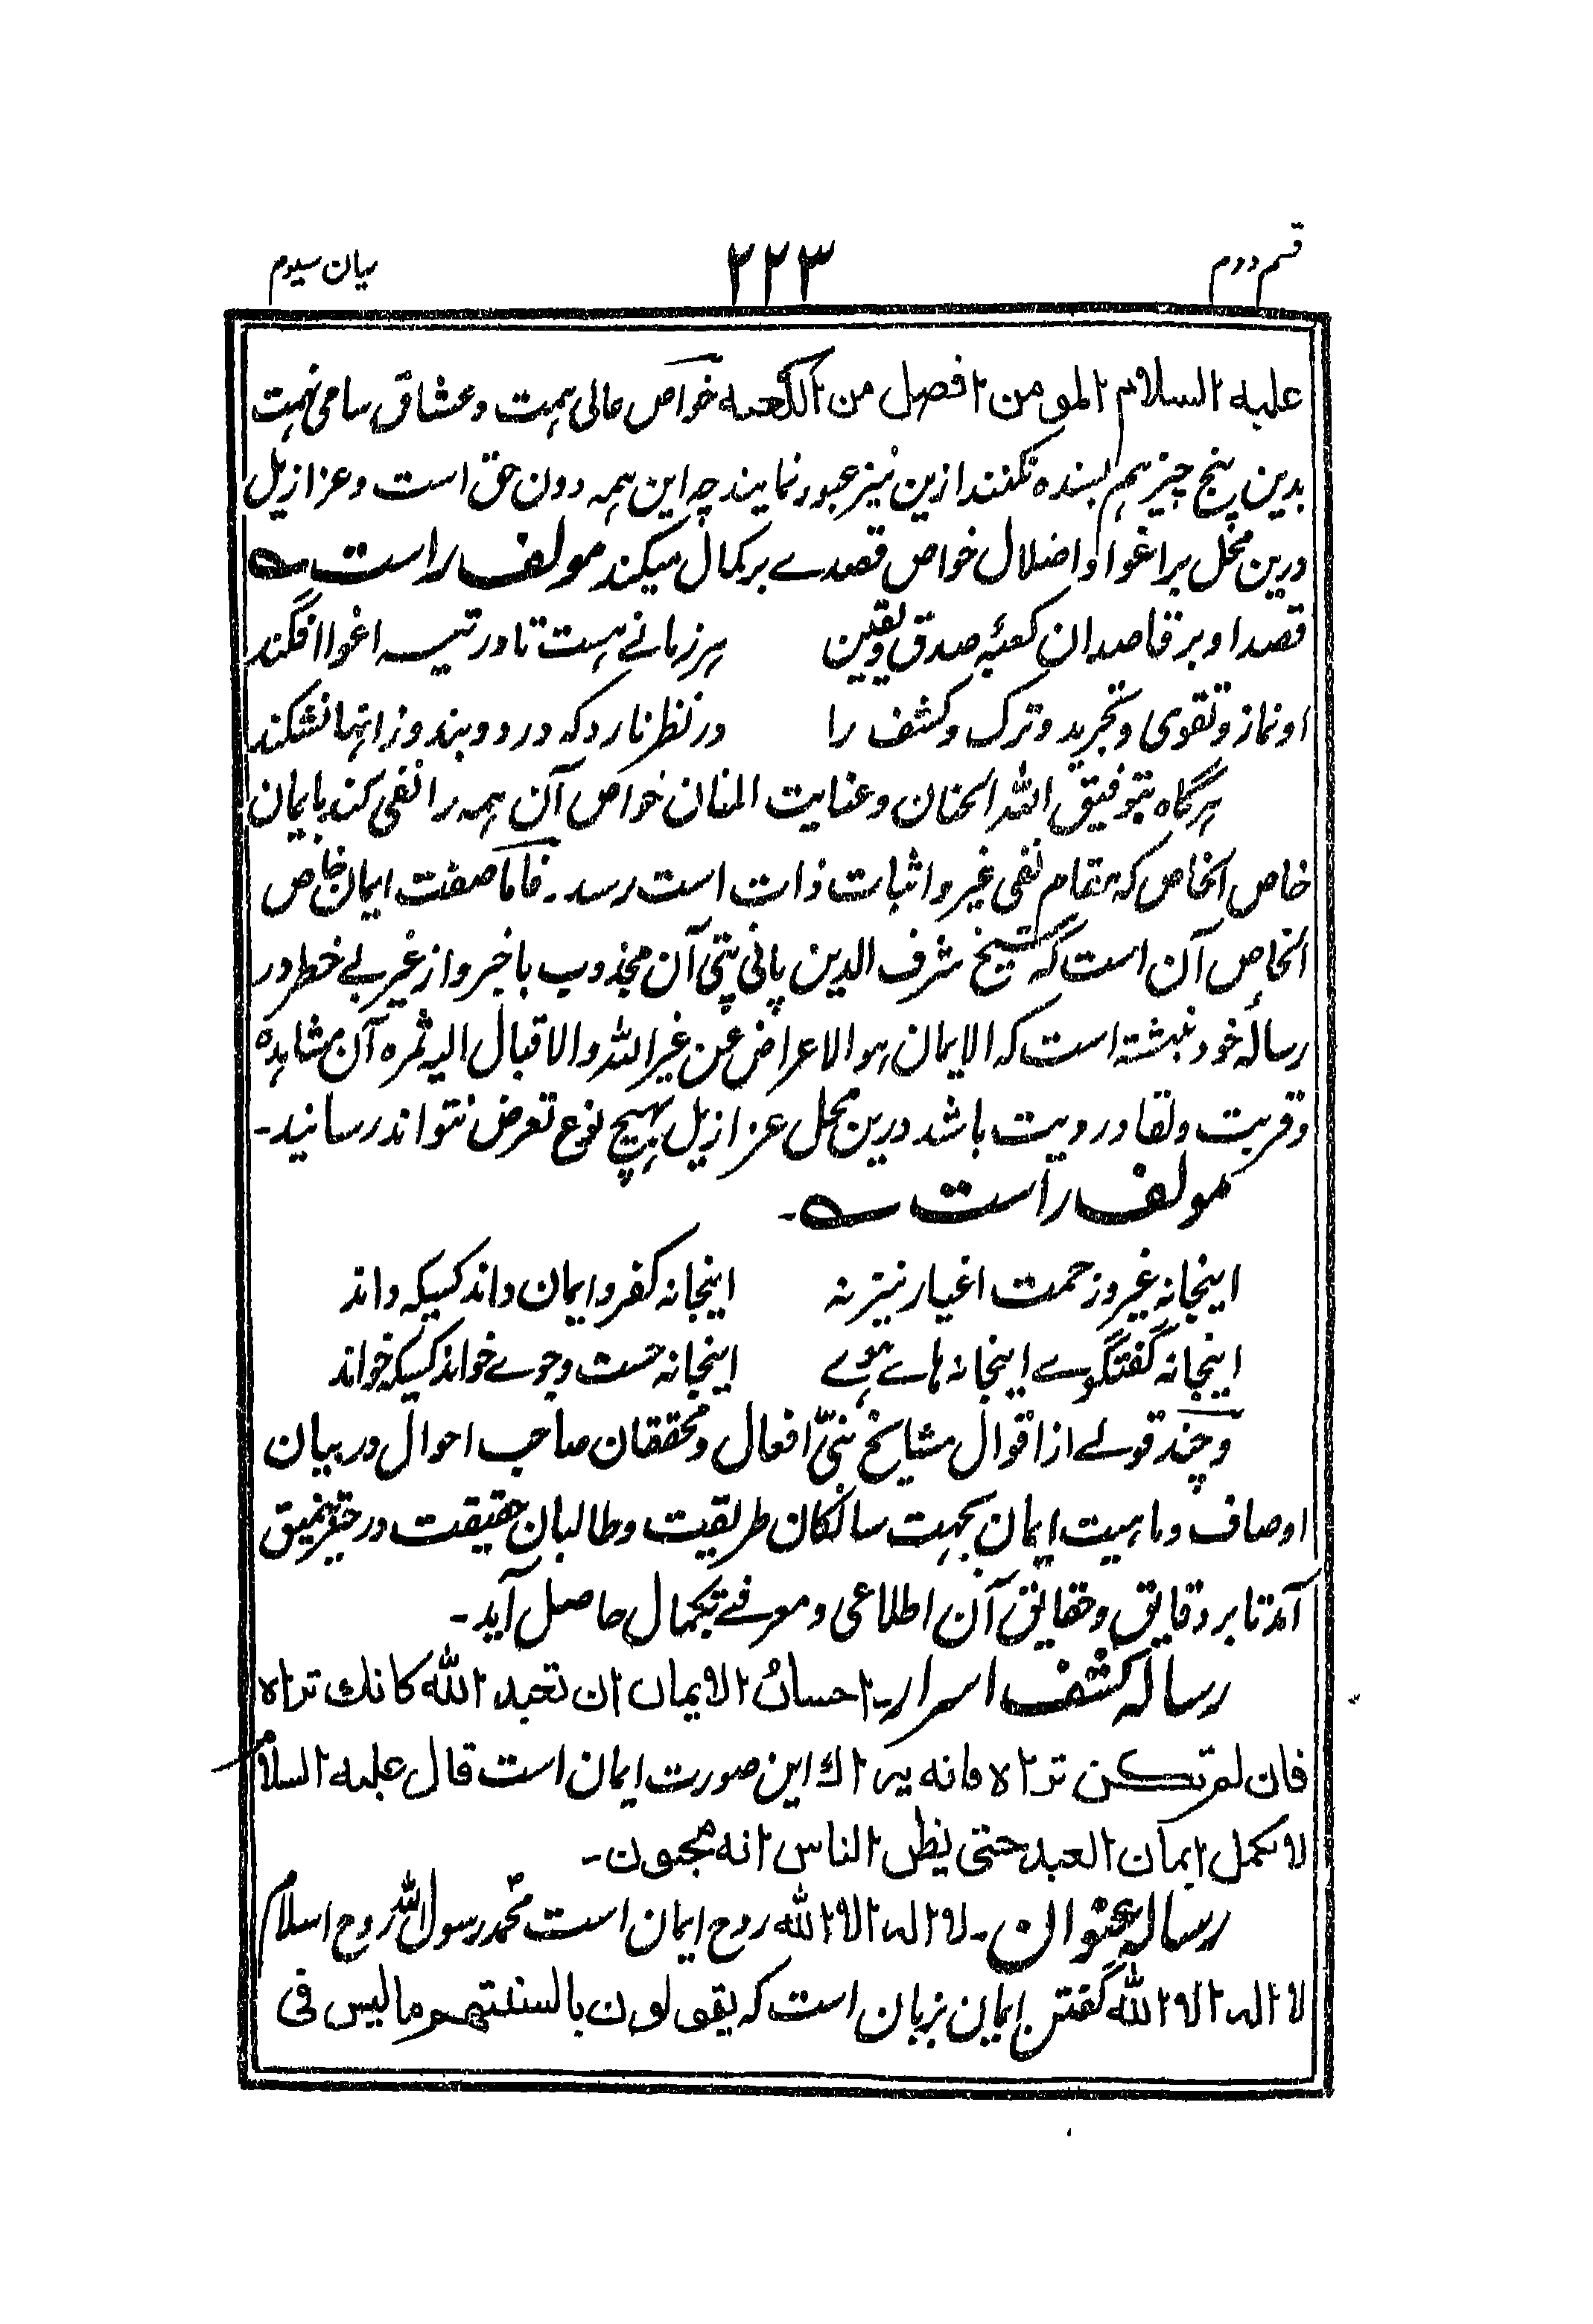 قسم دوم ۲۲۳ بیان سیوم
علیه السلام المومن افضل من الکعبه خواص عالی همت و عشاق سامی نهمت
بدین پنج چیز هم بسنده نکنند ازین نیز عبور نمایند چه این همه دون حق است و عزازیل
درین محل بر اغوا و اضلال خواص قصدے بر کمال میکند مولف راست ے
قصد او بر قاصدان کعبۂ صدق و یقین هر زمانے هست تا در تیه اغوا افگند
او نماز و تقوی و تجرید و ترک و کشف را در نظر نارد که در دو بند وز انها نشکند
هرگاه بتوفیق الله الحنان و عنایت المنان خواص آن همه را نفی کند بایمان
خاص الخاص که مقام نفی غیر و اثبات ذات است رسد۔ فاما صفت ایمان خاص
الخاص آن است که شیخ شرف الدین پانی پتی آن مجذوب باخبر و از غیر بے خطر در
رسالۂ خود نبشته است که الایمان هو الاعراض عن غیر الله والاقبال الیه ثمره آن مشاهده
و قربت و لقا و رویت باشد درین محل عزازیل بهیچ نوع تعرض نتواند رسانید۔
مولف راست ے۔
اینجا نه غیر و زحمت اغیار نیز نه اینجا نه کفر و ایمان داند کسیکه داند
اینجا نه گفتگوے اینجا نه هاے هوے اینجا نه جست وجوے خواند کسیکه خواند
و چند قولے از اقوال مشایخ افعال و محققان صاحب احوال در بیان
اوصاف و ماهیت ایمان بجهت سالکان طریقت و طالبان حقیقت در
آمد تا بر دقایق و حقایق آن اطلاعی و معرفتے بکمال حاصل آید۔
رساله کشف اسرار۔ احسان الایمان ان تعبد الله کانك تراه
فان لم تکن تراه فانه یراك این صورت ایمان است قال علیه السلام
لا یکمل ایمان العبد حتی یظن الناس انه مجنون۔
رساله عنوان۔ لا اله الا الله روح ایمان است محمد رسول الله روح اسلام
لا اله الا الله گفتن ایمان بزبان است که یقولون بالسنتهم ما لیس فی